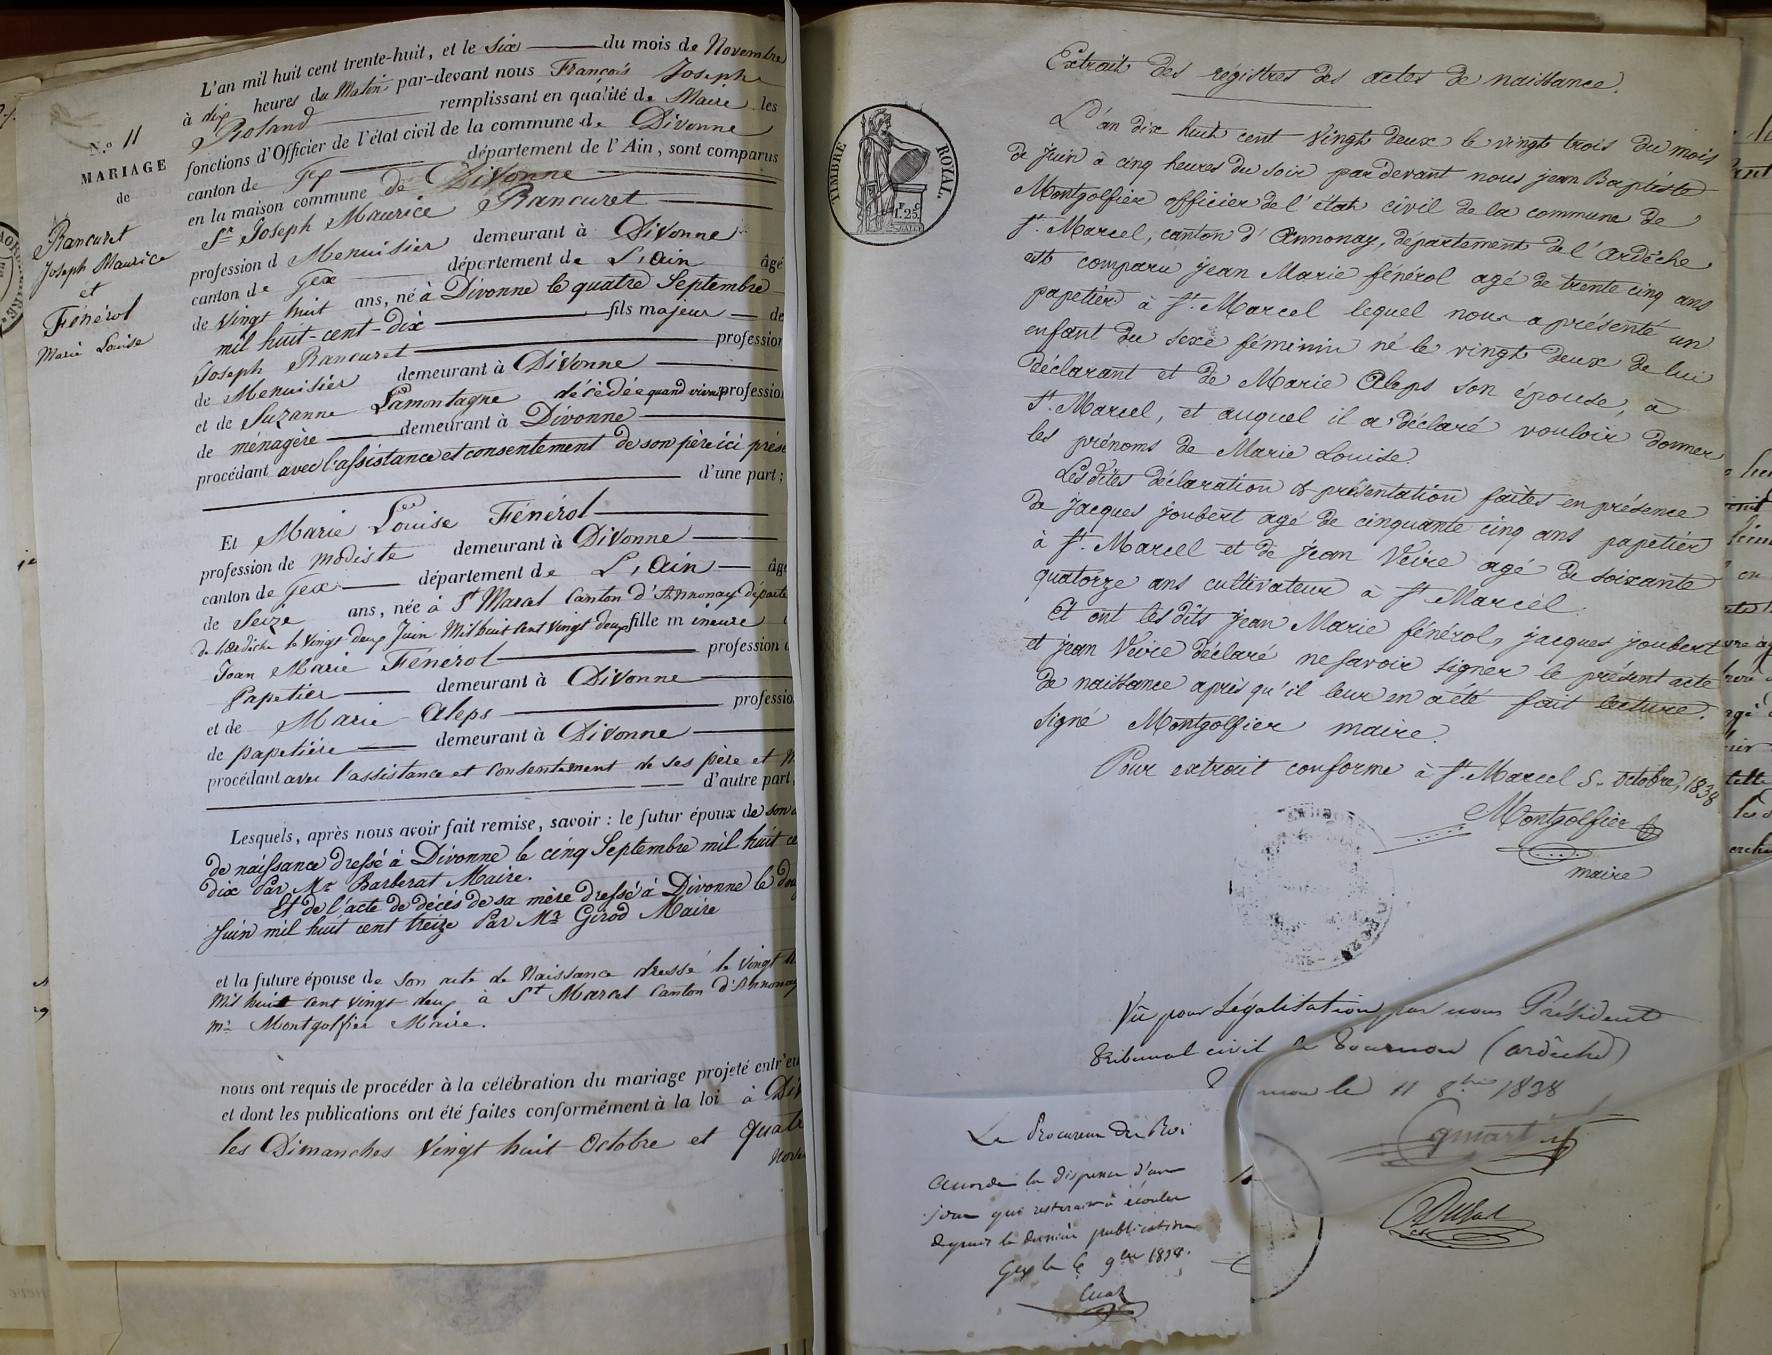 L'an mil huit cent trente-huit, et le Six du mois de Novembre
à dix heures du Matin par-devant nous François Joseph
Roland remplissant en qualité de Maire les
fonctions d'Officier de l'état civil de la commune de Divonne
canton de Gex département de l'Ain, sont comparus
en la maison commune de Divonne
Sr Joseph Maurice Rancuret
profession d Menuisier demeurant à Divonne
canton de Gex département de L'Ain âgé
de Vingt huit ans, né à Divonne le quatre Septembre
mil huit-cent-dix fils majeur de
Joseph Rancuret profession
de Menuisier demeurant à Divonne
et de Suzanne Lamontagne décédée quand vivait profession
de ménagère demeurant à Divonne
procédant avec l'assistance et consentement de son père ici prése
d'une part;
N.o 11
MARIAGE
de
Rancuret
Joseph Maurice
et
Fénérol
Marie Louise
Et Marie Louise Fénérol
profession de modiste demeurant à Divonne
canton de Gex département de L'Ain âgé
de Seize ans, née à St Marcel Canton d'Annonay départe
de l'Ardèche le Vingt-deux Juin Mil huit Cent Vingt deux fille mineure
Jean Marie Fénérol profession
Papetier demeurant à Divonne
et de Marie Aleps profession
de papetière demeurant à Divonne
procédant avec l'assistance et Consentement de ses père et m
d'autre part,
Lesquels, après nous avoir fait remise, savoir : le futur époux de son a
de naissance dressé à Divonne le cinq Septembre mil huit ce
dix Par Mr Barberat Maire.
Et de l'acte de décès de sa mère dressé à Divonne le dou
Juin mil huit cent treize Par Mr Girod Maire
et la future épouse de Son acte de Naissance dressé le Vingt
Mil huit Cent Vingt deux à St Marcel Canton d'Annonay
mr Montgolfier Maire.
nous ont requis de procéder à la célébration du mariage projeté entr'eu
et dont les publications ont été faites conformément à la loi à Div
les Dimanches Vingt huit Octobre et quatr
Nov
Extrait des régistres des actes de naissance.
TIMBRE ROYAL
1.25
L'an dix huit cent vingt deux le vingt trois du mois
de Juin à cinq heures du soir par devant nous jean Baptiste
Montgolfier officier de l'état civil de la commune de
St. Marcel, canton d'Annonay, département de l'Ardèche
est comparu jean Marie fénérol agé de trente cinq ans
papetier à St. Marcel lequel nous a présenté un
enfant du sexe féminin né le vingt deux de lui
déclarant et de Marie Aleps son épouse, à
St. Marcel, et auquel il a déclaré vouloir donner
les prénoms de Marie Louise.
Les dites déclaration & présentation faites en présence
de jacques joubert agé de cinquante cinq ans papetier
à St. Marcel et de jean Veire agé de soixante
quatorze ans cultivateur à St Marcel.
Et ont les dits jean Marie fénérol, jacques joubert
et jean Veire déclaré ne savoir signer le présent acte
de naissance après qu'il leur en a été fait lecture.
signé Montgolfier maire.
Pour extrait conforme à St. Marcel 5. octobre, 1838
Montgolfier
maire
Vu pour Légalisation par nous Président
Tribunal civil de Tournon (ardèche)
non le 11 8bre 1838
Le Procureur du Roi
accorde la dispense d'un
jour qui resterait à écouler
depuis la dernière publication
Gex le 5 9bre 1838.